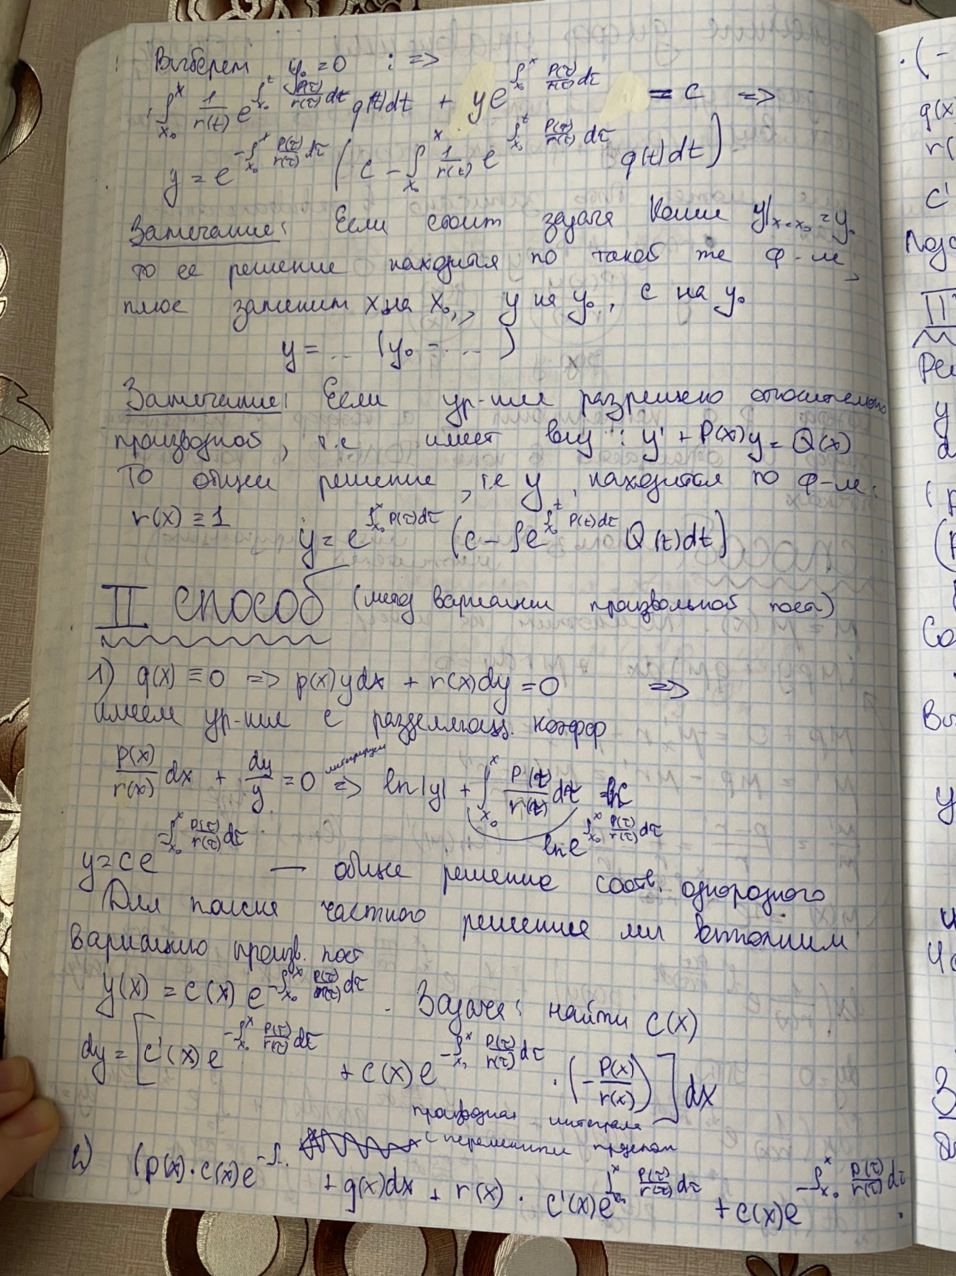 Выберем y₀=0 : =>
∫ₓ₀ˣ 1/r(t) e^{∫ₓ₀ᵗ p(τ)/r(τ) dτ} q(t)dt + y e^{∫ₓ₀ˣ p(τ)/r(τ) dτ} = c =>
y = e^{-∫ₓ₀ˣ p(τ)/r(τ) dτ} (c - ∫ₓ₀ˣ 1/r(t) e^{∫ₓ₀ᵗ p(τ)/r(τ) dτ} q(t)dt)
Замечание: Если стоит задача Коши y|ₓ₌ₓ₀ = y₀
то ее решение находится по такой же ф-ле,
плюс заменит x на x₀, y на y₀, c на y₀
y = ... (y₀ = ...)
Замечание: Если ур-ние разрешено относительно
производной, т.е имеет вид: y' + P(x)y = Q(x)
То общее решение, т.е y, находится по ф-ле:
r(x) ≡ 1
y = e^{∫ₓ₀ˣ p(τ)dτ} (c - ∫e^{∫ₓ₀ᵗ p(τ)dτ} Q(t)dt)
II способ (метод вариации произвольной пост.)
1) q(x) ≡ 0 => p(x)ydx + r(x)dy = 0 =>
имеем ур-ние с разделяющ. коэфф
p(x)/r(x) dx + dy/y = 0 => ln|y| + ∫ₓ₀ˣ p(τ)/r(τ) dτ = lnc
ln e^{∫ₓ₀ˣ p(τ)/r(τ) dτ}
y = c e^{-∫ₓ₀ˣ p(τ)/r(τ) dτ} — общее решение соотв. однородного
Для поиска частного решения мы выполним
вариацию произв. пост
y(x) = c(x) e^{-∫ₓ₀ˣ p(τ)/r(τ) dτ}. Задача: найти c(x)
dy = [c'(x) e^{-∫ₓ₀ˣ p(τ)/r(τ) dτ} + c(x) e^{-∫ₓ₀ˣ p(τ)/r(τ) dτ} · (-p(x)/r(x))] dx
производная интеграла
с переменным пределом
2) (p(x)·c(x)e^{-∫.} + q(x)dx + r(x) · c'(x)e^{∫ₓ₀ˣ p(τ)/r(τ) dτ} + c(x)e^{-∫ₓ₀ˣ p(τ)/r(τ) dτ} ·